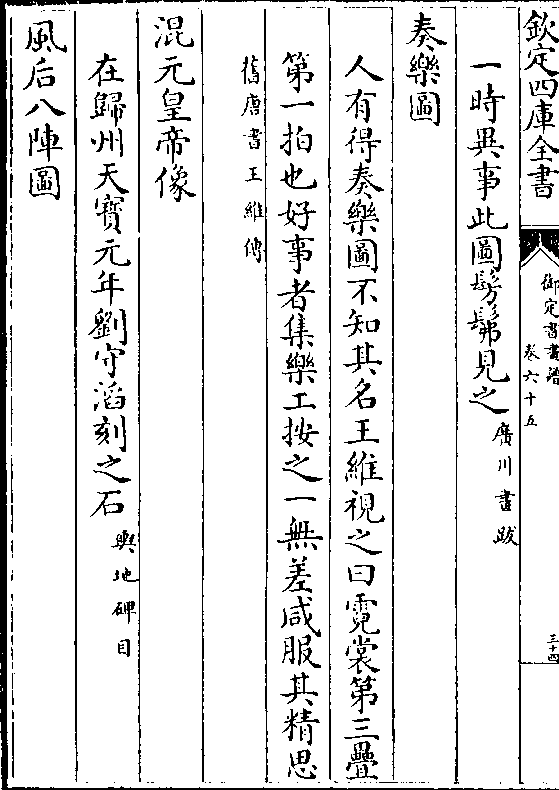 欽定四庫全書
御定書畫譜
卷六十五
三十四
一時異事此圖髣髴見之廣川畫跋
奏樂圖
人有得奏樂圖不知其名王維視之曰霓裳第三疊
第一拍也好事者集樂工按之一無差咸服其精思
舊唐書王維傳
混元皇帝像
在歸州天寶元年劉守滔刻之石輿地碑目
風后八陣圖